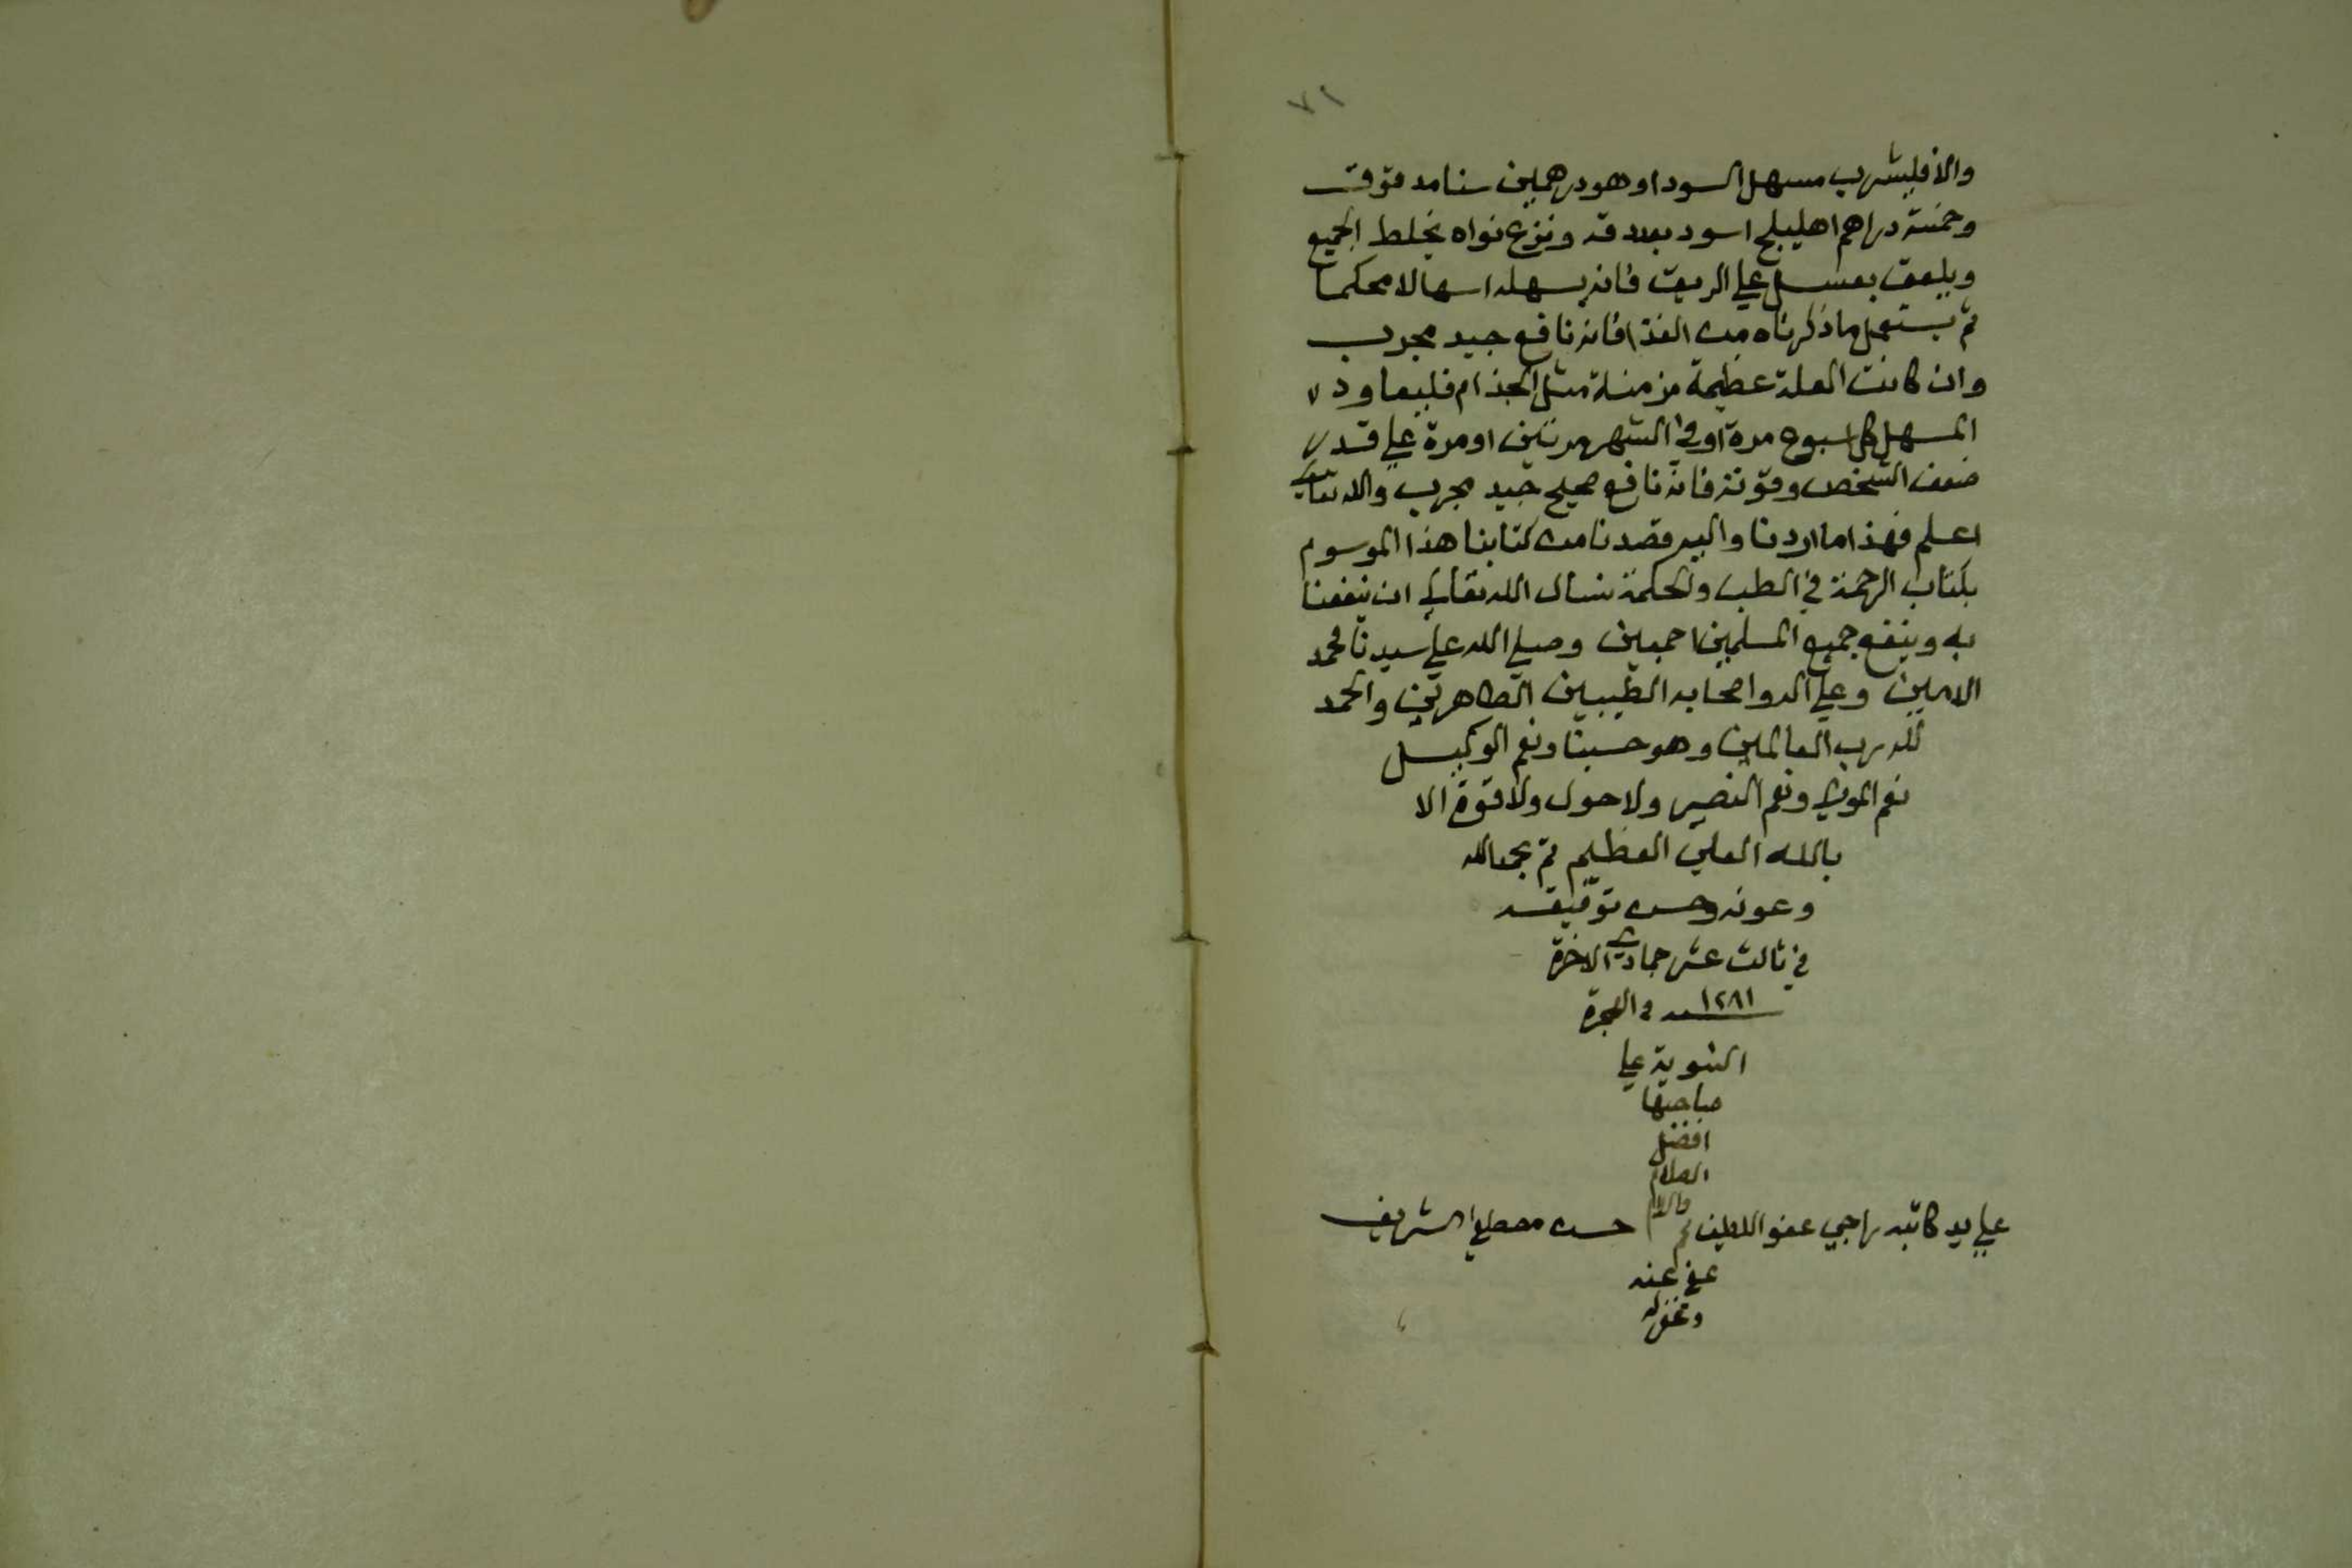 ٧٢
والا فليشرب مسهل السودا وهو درهمين سنا مدقوقـ
وخمسة دراهم اهليلج اسود بعد دقه ونزع نواه يخلط الجميع
ويلعق بعسل علي الريق فانه يسهله اسهالا محكما
ثم يستعمل ما ذكرناه من الغذا فانه نافع جيد مجرب
وان كانت العلة عظيمة مزمنة مثل الجذام فليعاود
المسهل كل اسبوع مرة او في الشهر مرتين او مرة علي قدر
ضعف الشخص وقوته فانه نافع صحيح جيد مجرب والله تعالي
اعلم فهذا ما اردنا واليه قصدنا من كتابنا هذا الموسوم
بكتاب الرحمة في الطب والحكمة نسال الله تعالي ان ينفعنا
به وينفع جميع المسلمين اجمعين وصلي الله علي سيدنا محمد
الامين وعلي اله واصحابه الطيبين الطاهرين والحمد
لله رب العالمين وهو حسبنا ونعم الوكيل
نعم المولي ونعم النصير ولا حول ولا قوة الا
بالله العلي العظيم تم بحمد الله
وعونه وحسن توفيقه
في ثالث عشر جمادي الاخرة
١٢٨١ سنه في الهجرة
النبوية علي
صاحبها
افضل
الصلاة
والسلام
علي يد كاتبه راجي عفو اللطيف حسن مصطفي الشريف
عفي عنه
وغفر له